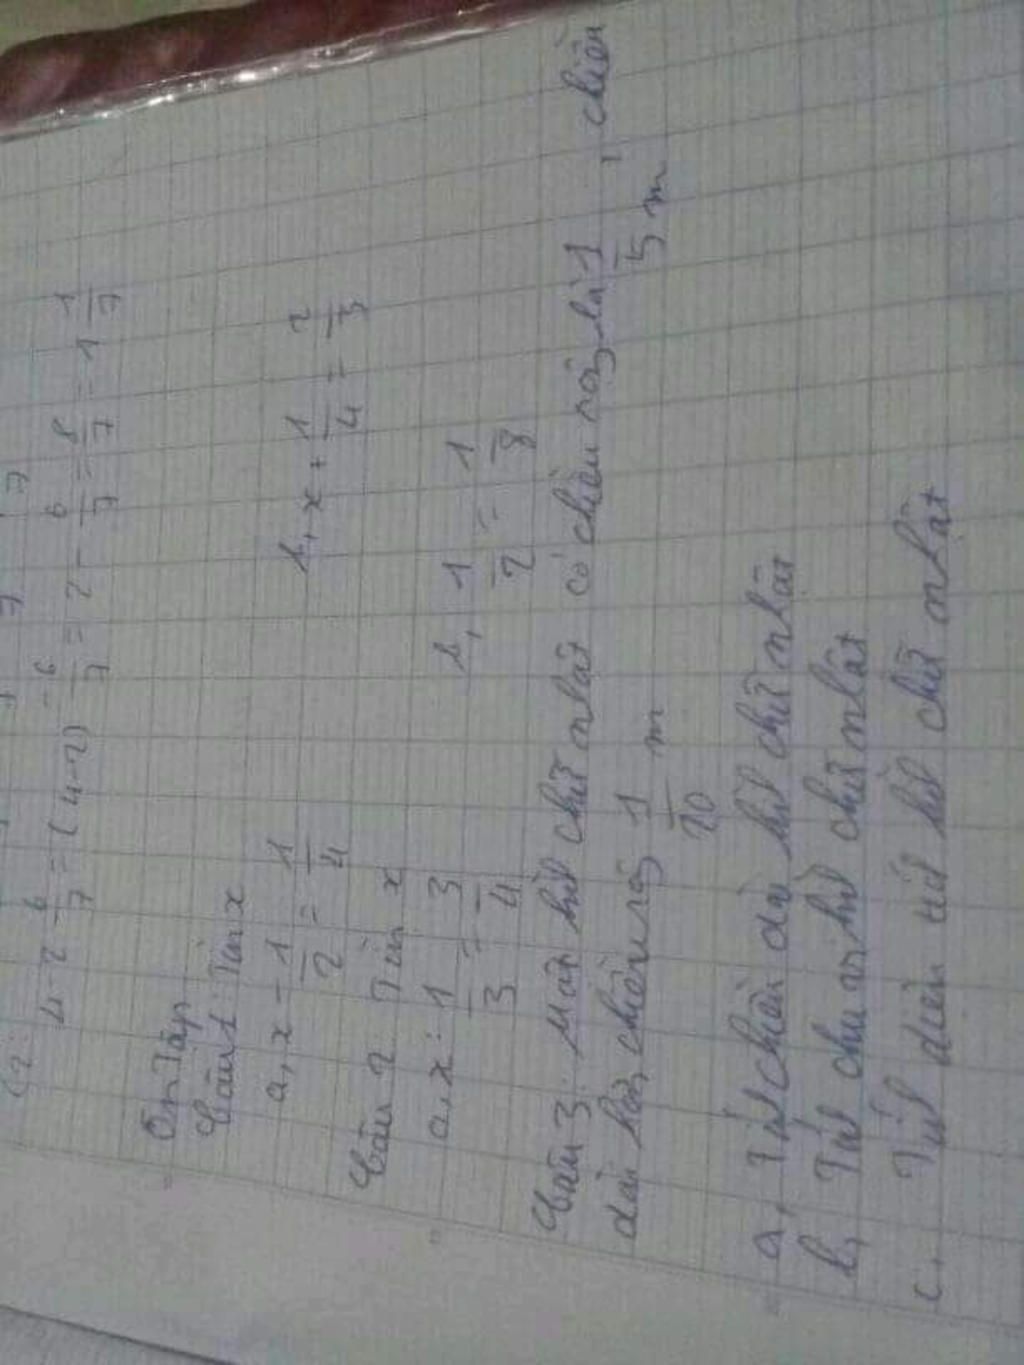 4 - 2 6/7 = (4-2) - 6/7 = 2 - 6/7 = 8/7 = 1 1/7
Ôn Tập
Câu 1: Tìm x
a, x - 1/2 = 1/4 b, x + 1/4 = 2/3
Câu 2 Tìm x
a, x : 1/3 = 3/4 b, 1/2 : = 1/8
Câu 3: Một hìh chữ nhật có chiều rộng là 1/5 m, chiều
dài hơn chiều rộng 1/20 m
a, Tíh chiều dài hìh chữ nhật
b, Tíh chu vi hìh chữ nhật
c, Tíh diện tích hìh chữ nhật